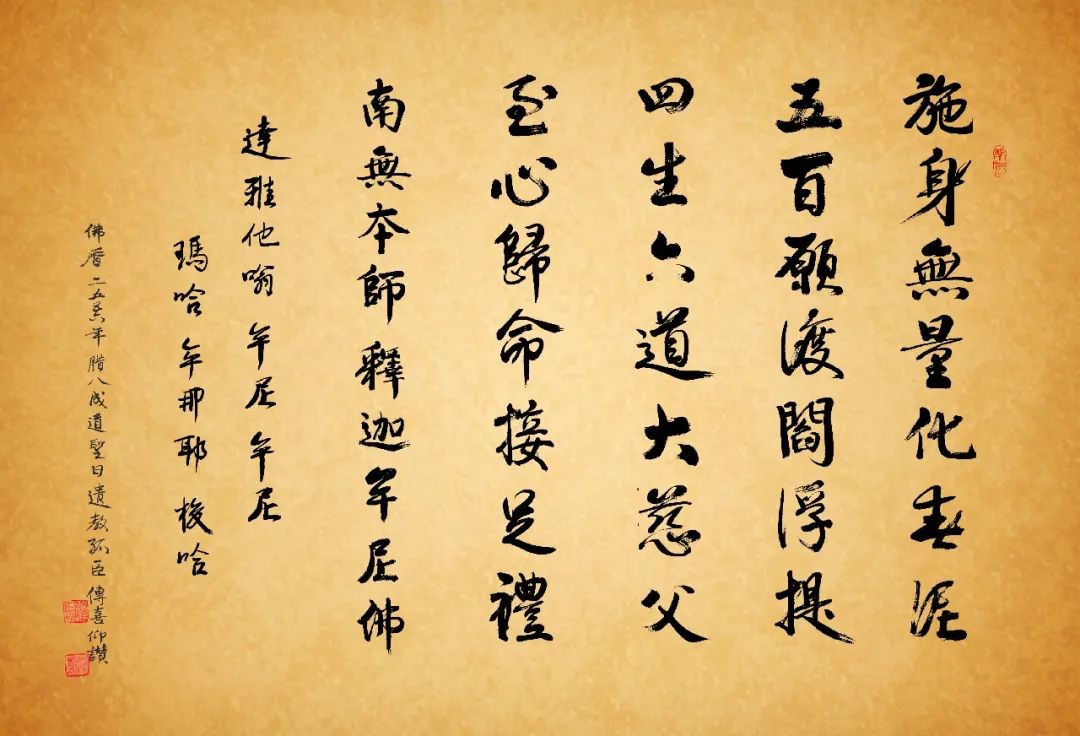 施身無量化春泥
五百願渡閻浮提
四生六道大慈父
至心歸命接足禮
南無本師釋迦牟尼佛
達雅他嗡牟尼牟尼
瑪哈牟那耶梭哈
佛曆二五五六年臘八成道聖日遺教孤臣傳喜仰讚